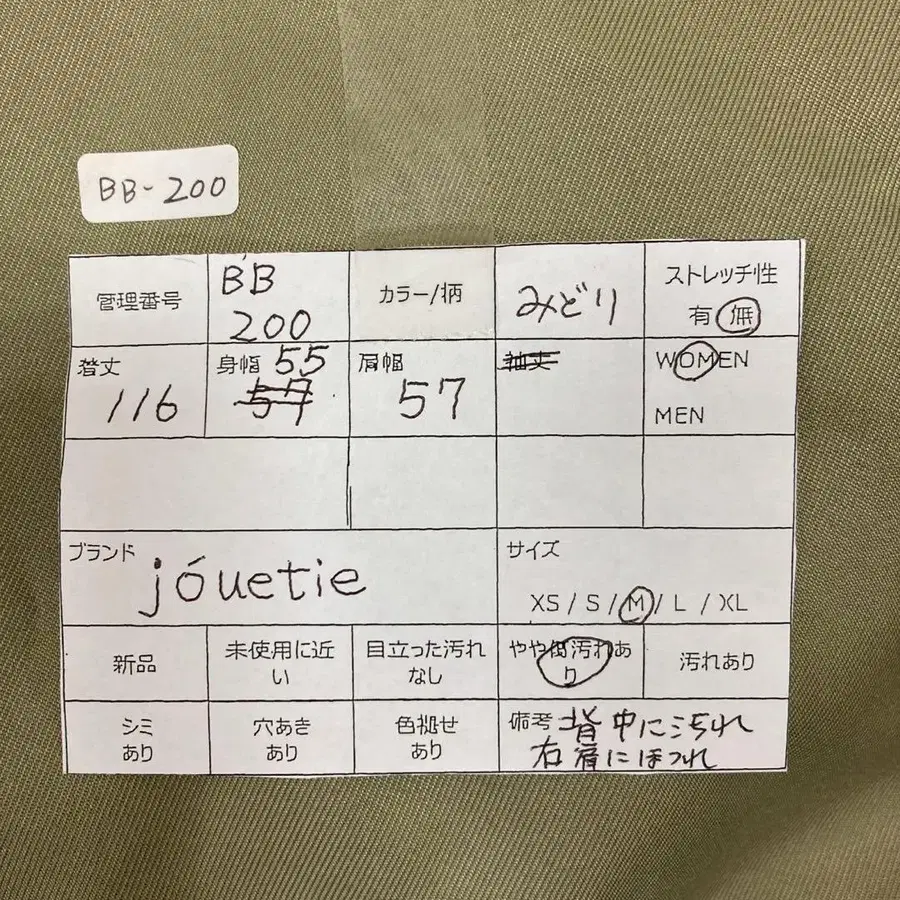 BB-200
管理番号
BB
200
カラー/柄
みどり
ストレッチ性
有 無
着丈
116
身幅 55
57
肩幅
57
袖丈
WOMEN
MEN
ブランド
jóuetie
サイズ
XS / S / M / L / XL
新品
未使用に近
い
目立った汚れ
なし
やや傷汚れあ
り
汚れあり
シミ
あり
穴あき
あり
色褪せ
あり
備考 背中に汚れ
右肩にほつれ